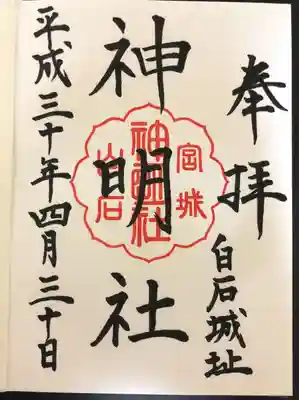 奉拝
白石城址
宮城
神明社
白石
神明社
平成三十年四月三十日